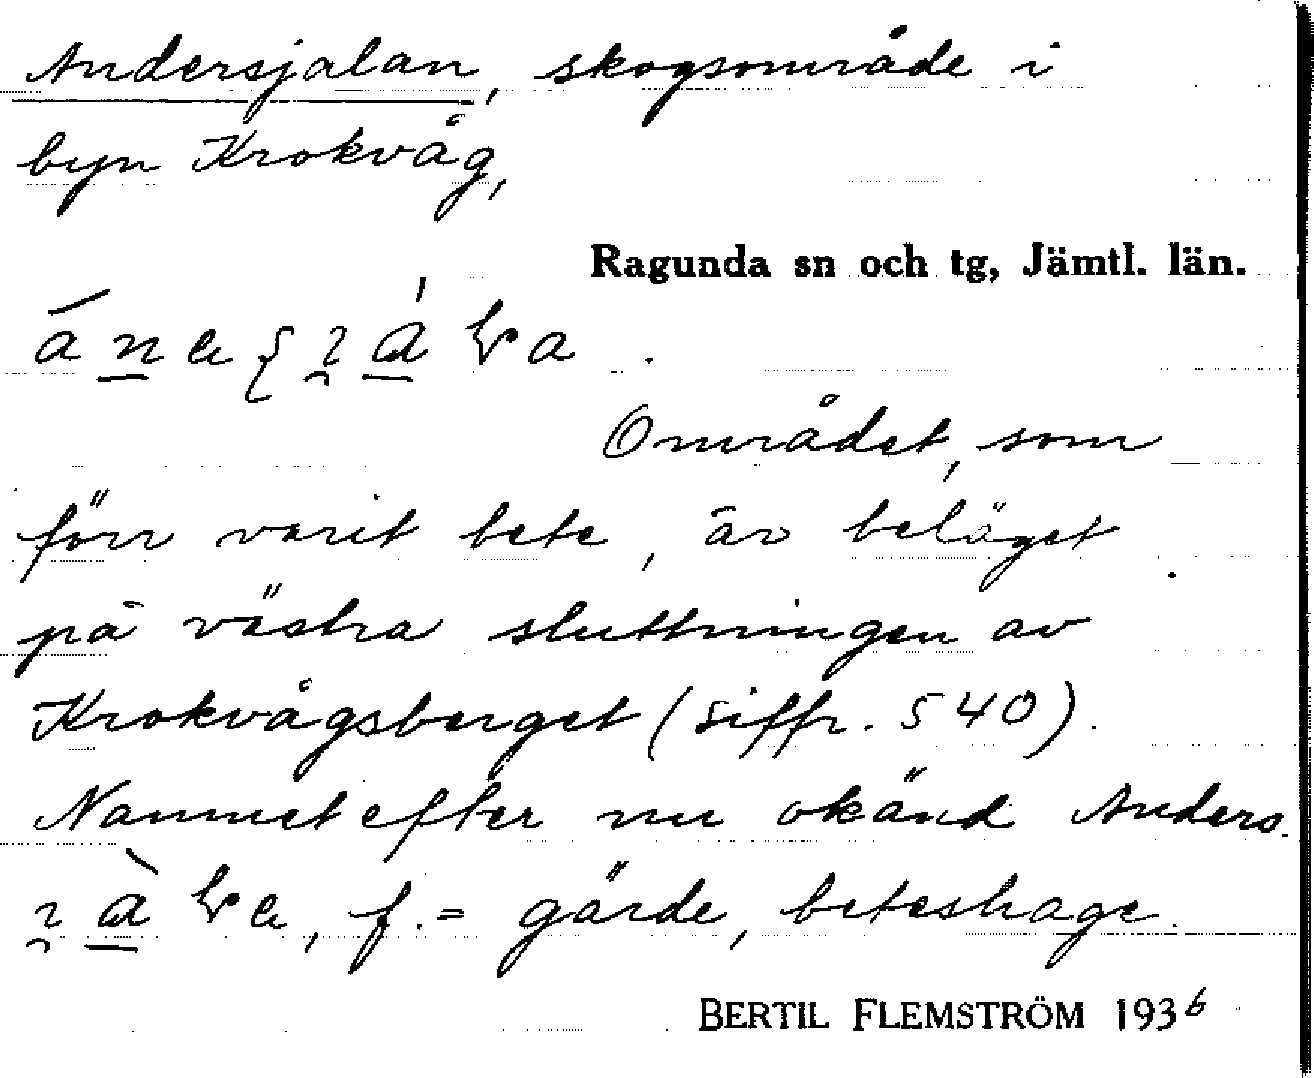 Andersjalan, skogsområde i
byn Krokvåg,
Ragunda sn och tg, Jämtl. län.
Området, som
förr varit bete, är beläget
på västra sluttningen av
Krokvågsberget (siffr. 540).
Namnet efter nu okänd Anders.
f. = gärde, beteshage.
BERTIL FLEMSTRÖM 1936